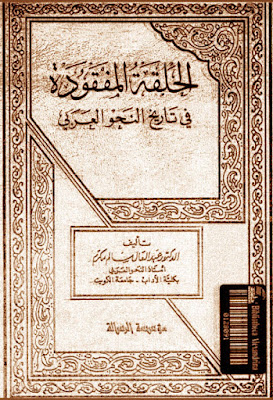 الحلقة المفقودة
في تاريخ النحو العربي
تأليف
الدكتور عبد العال سالم مكرم
أستاذ النحو العربي
بكلية الآداب - جامعة الكويت
مؤسسة الرسالة
Bibliotheca Alexandrina